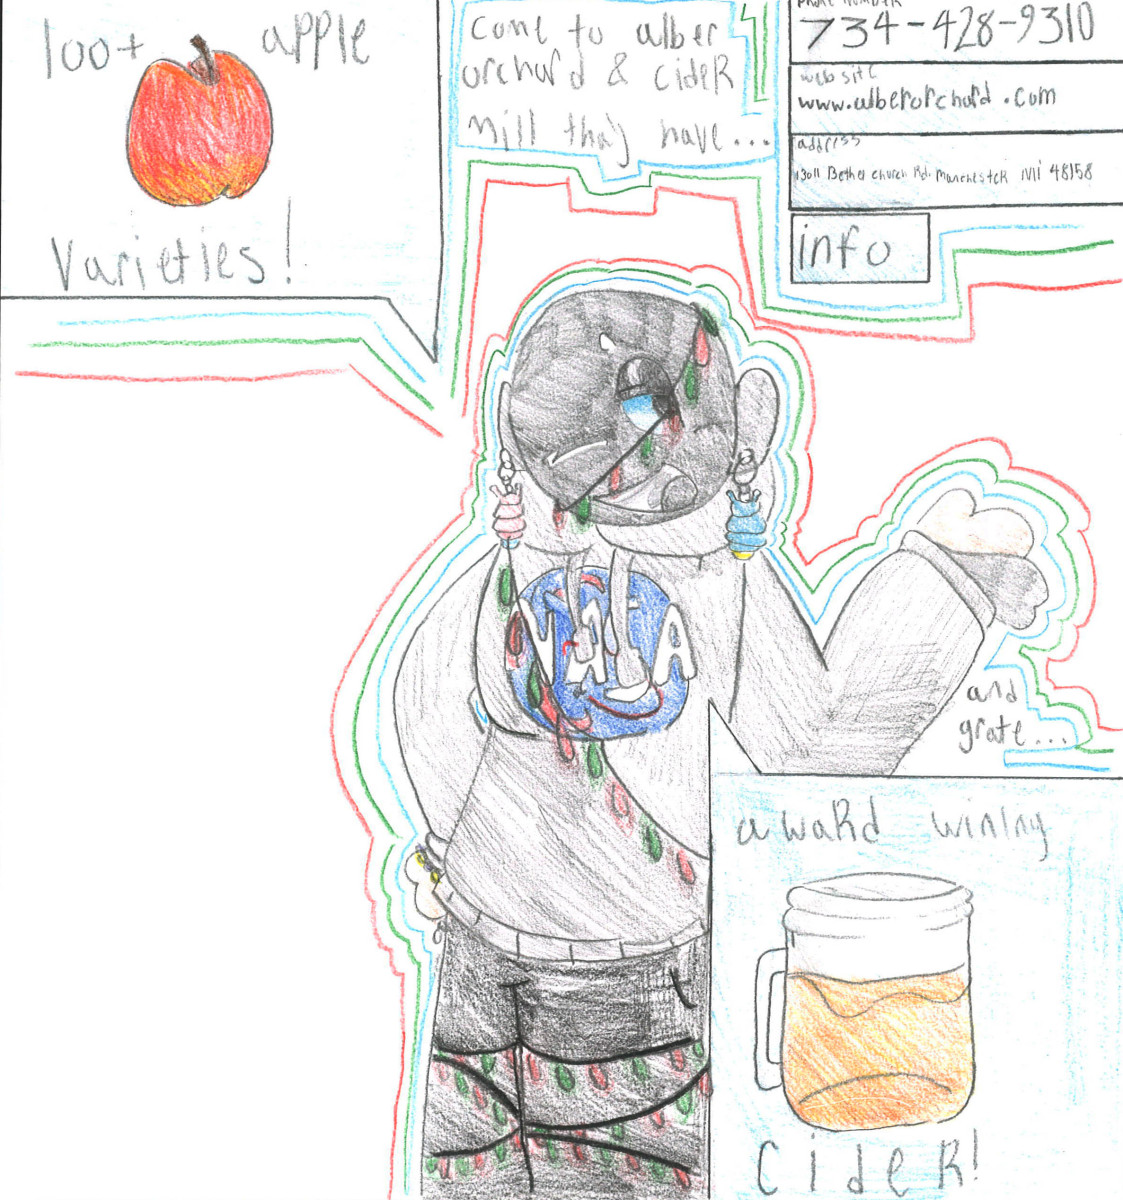 100+ apple
Varieties!
come to alber
orchard & cideR
mill thay have...
phone number
734-428-9310
website
www.alberorchard.com
address
13011 Bethel church Rd. Manchester Mi 48158
info
NASA
and
grate...
awaRd wining
CideR!